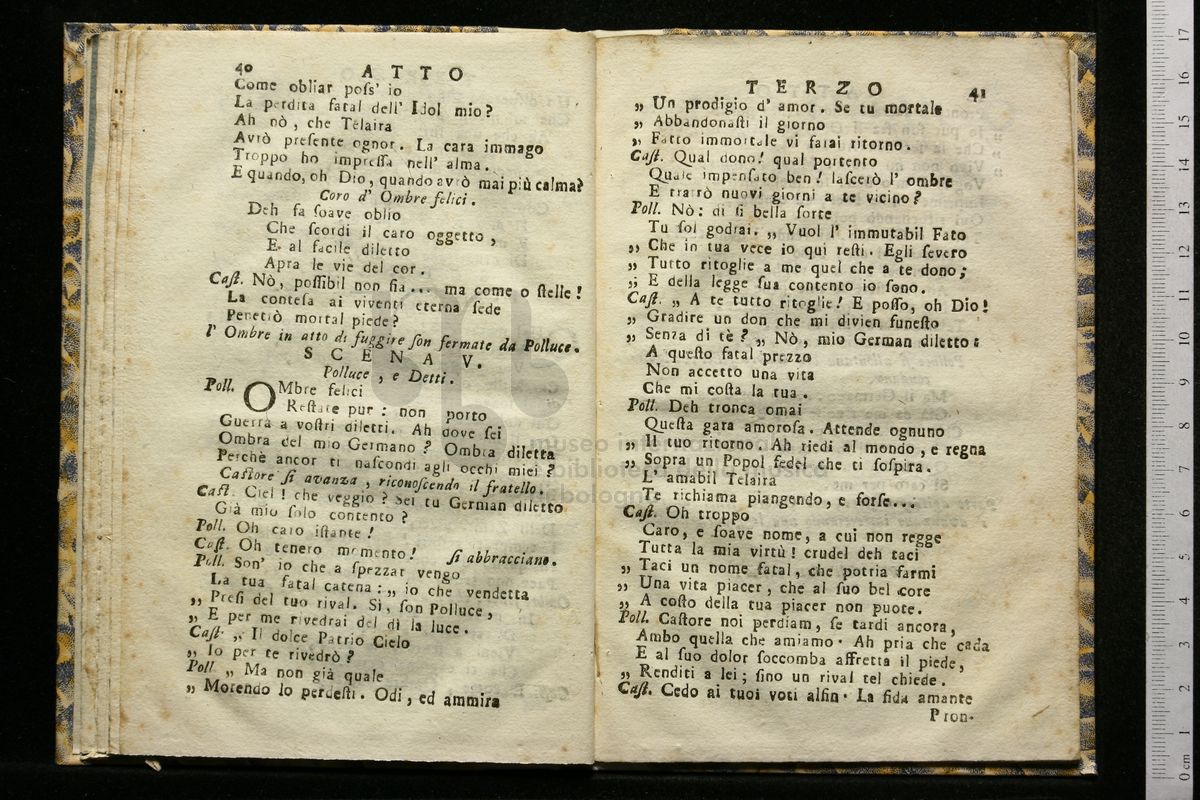 40 ATTO
Come obliar poss' io
La perdita fatal dell' Idol mio?
Ah nò, che Telaira
Avrò presente ognor. La cara immago
Troppo ho impressa nell' alma.
E quando, oh Dio, quando avrò mai più calma?
Coro d' Ombre felici.
Deh fa soave oblio
Che scordi il caro oggetto,
E al facile diletto
Apra le vie del cor.
Cast. Nò, possibil non sia... ma come o stelle!
La contesa ai viventi eterna sede
Penetrò mortal piede?
l' Ombre in atto di fuggire son fermate da Polluce.
SCENA V.
Polluce, e Detti.
Poll. OMbre felici
Restate pur: non porto
Guerra a vostri diletti. Ah dove sei
Ombra del mio Germano? Ombra diletta
Perchè ancor ti nascondi agli occhi miei?
Castore si avanza, riconoscendo il fratello.
Cast. Ciel! che veggio? Sei tu German diletto
Già mio solo contento?
Poll. Oh caro istante!
Cast. Oh tenero momento! si abbracciano.
Poll. Son' io che a spezzar vengo
La tua fatal catena: „ io che vendetta
„ Presi del tuo rival. Sì, son Polluce,
„ E per me rivedrai del dì la luce.
Cast. „ Il dolce Patrio Cielo
„ Io per te rivedrò?
Poll. „ Ma non già quale
„ Morendo lo perdesti. Odi, ed ammira
TERZO 41
„ Un prodigio d' amor. Se tu mortale
„ Abbandonasti il giorno
„ Fatto immortale vi farai ritorno.
Cast. Qual dono! qual portento
Quale impensato ben! lascerò l' ombre
E trarrò nuovi giorni a te vicino?
Poll. Nò: di sì bella sorte
Tu sol godrai. „ Vuol l' immutabil Fato
„ Che in tua vece io qui resti. Egli severo
„ Tutto ritoglie a me quel che a te dono;
„ E della legge sua contento io sono.
Cast. „ A te tutto ritoglie! E posso, oh Dio!
„ Gradire un don che mi divien funesto
„ Senza di tè? „ Nò, mio German diletto:
A questo fatal prezzo
Non accetto una vita
Che mi costa la tua.
Poll. Deh tronca omai
Questa gara amorosa. Attende ognuno
„ Il tuo ritorno. Ah riedi al mondo, e regna
„ Sopra un Popol fedel che ti sospira.
L' amabil Telaira
Te richiama piangendo, e forse...
Cast. Oh troppo
Caro, e soave nome, a cui non regge
Tutta la mia virtù! crudel deh taci
„ Taci un nome fatal, che potria farmi
„ Una vita piacer, che al suo bel core
„ A costo della tua piacer non puote.
Poll. Castore noi perdiam, se tardi ancora,
Ambo quella che amiamo. Ah pria che cada
E al suo dolor soccomba affretta il piede,
„ Renditi a lei; sino un rival tel chiede.
Cast. Cedo ai tuoi voti alfin. La fida amante
Pron-
museo internazionale
biblioteca della musica
bologna